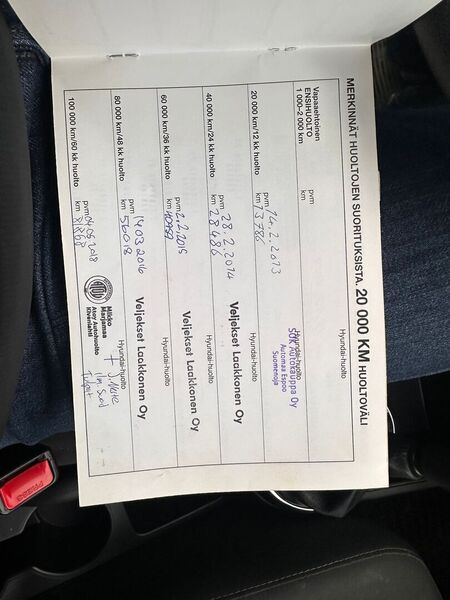 MERKINNÄT HUOLTOJEN SUORITUKSISTA. 20 000 KM HUOLTOVÄLI
Vapaaehtoinen
ENSIHUOLTO
1 000–2 000 km
pvm
km
Hyundai-huolto
20 000 km/12 kk huolto
pvm 14.2.2013
km 13786
Hyundai-huolto
SOK Autokauppa Oy
Automaa Espoo
Suomenoja
40 000 km/24 kk huolto
pvm 28.2.2014
km 28486
Hyundai-huolto
Veljekset Laakkonen Oy
60 000 km/36 kk huolto
pvm 2.2.2015
km
Hyundai-huolto
Veljekset Laakkonen Oy
80 000 km/48 kk huolto
pvm 14.03.2016
km 56018
Hyundai-huolto
Veljekset Laakkonen Oy
100 000 km/60 kk huolto
pvm 04.05.2018
km 81868
Hyundai-huolto
Mikko
Marjanna
Atoy Autohuolto
Kivenlahti
PRESS